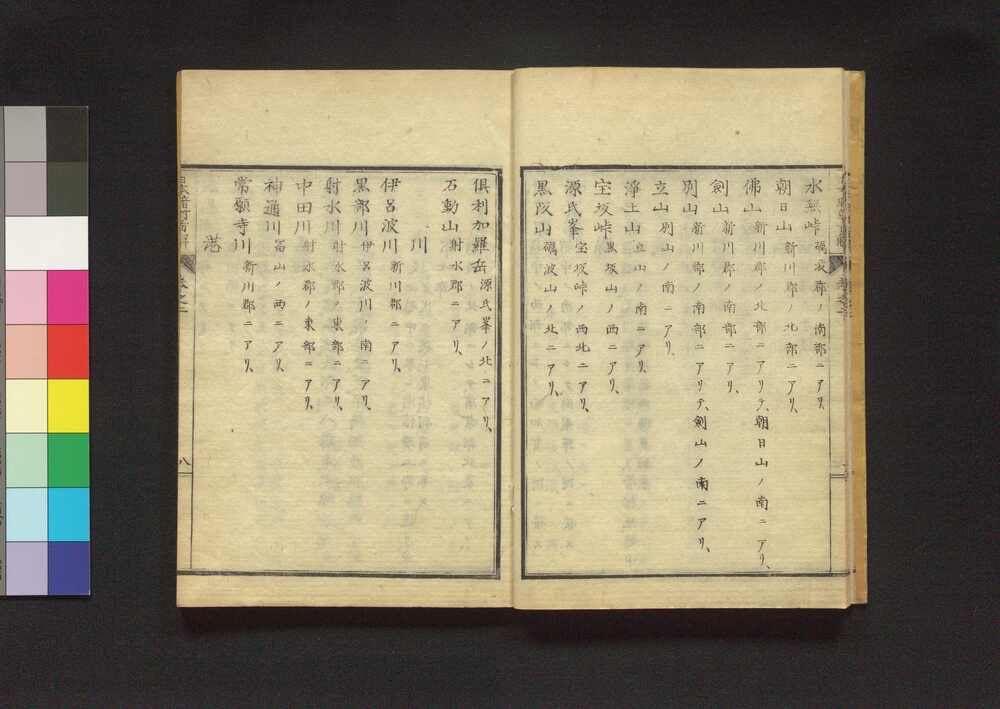 水無峠 礪波郡ノ南部ニアリ
朝日山 新川郡ノ北部ニアリ、
佛山 新川郡ノ北部ニアリテ、朝日山ノ南ニアリ、
劍山 新川郡ノ南部ニアリ、
別山 新川郡ノ南部ニアリテ、劍山ノ南ニアリ、
立山 別山ノ南ニアリ、
淨土山 立山ノ南ニアリ、
宝坂峠 黒坂山ノ西ニアリ、
源氏峯 宝坂峠ノ西北ニアリ、
黒坂山 礪波山ノ北ニアリ、
倶利加羅岳 源氏峯ノ北ニアリ、
石動山 射水郡ニアリ、
川
伊呂波川 新川郡ニアリ、
黒部川 伊呂波川ノ南ニアリ、
射水川 射水郡ノ東部ニアリ、
中田川 射水郡ノ東部ニアリ、
神通川 冨山ノ西ニアリ、
常願寺川 新川郡ニアリ、
港
八